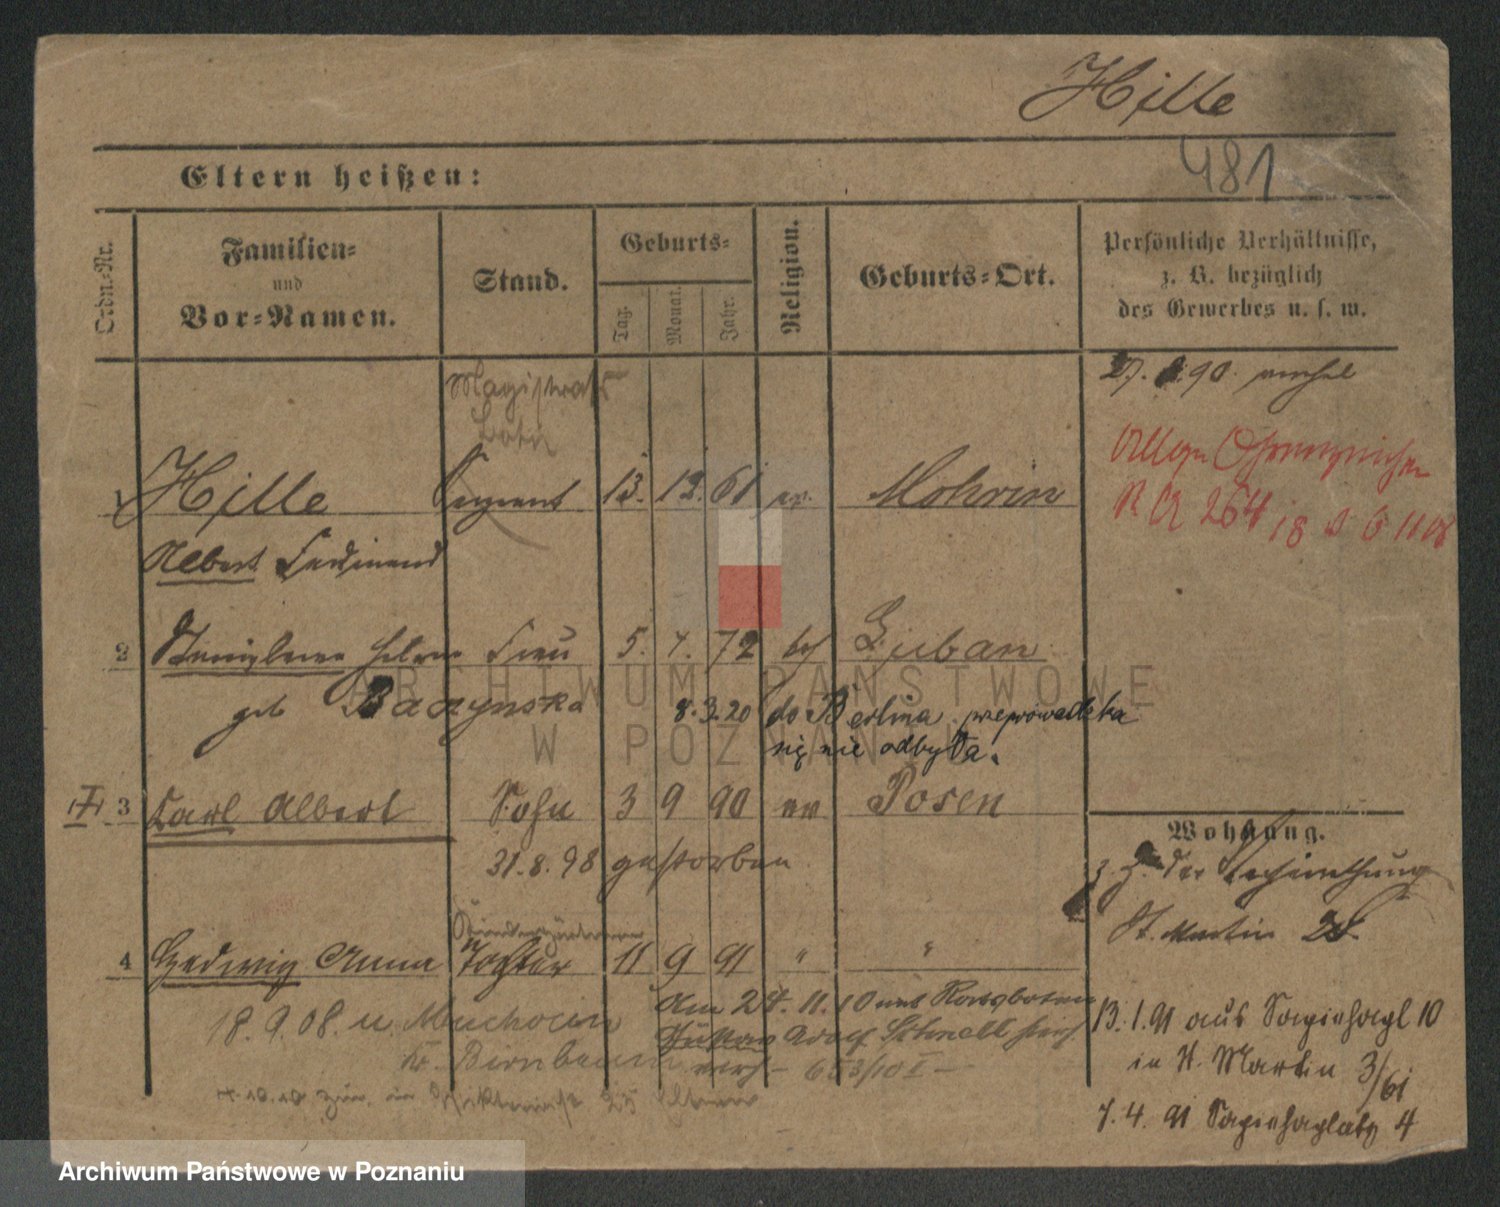 Hille
481
Eltern heißen:
Ordn.-Nr.
Familien-
und
Vor-Namen.
Stand.
Geburts-
Tag.
Monat.
Jahr.
Religion.
Geburts-Ort.
Persönliche Verhältnisse,
z. B. bezüglich
des Gewerbes u. s. w.
Magistrats
90
1 Hille Sergeant 13. 12. 61 ev. Mohrin
R A 264
Albert Ferdinand
2 Frau 5. 7. 72 Luban
geb Baczynska 8.3.20 do Berlina przeprowadzka
się nie odbyła.
3 Carl Albert Sohn 3 9 90 ev Posen
31.8.98 gestorben
Wohnung.
z. Z. der
St. Martin
4 Hedwig Anna Tochter 11 9 91 " "
18.9.08. n. Muchocin
Kr. Birnbaum
Am 24. 11. 10 mit
Gustav Adolf Schnell hier
verh - 653/10 I -
4.10.10 25
13.1.91 aus Sapiehapl 10
in St. Martin 3/61
7.4.91 Sapiehaplatz 4
ARCHIWUM PAŃSTWOWE
W POZNANIU
Archiwum Państwowe w Poznaniu